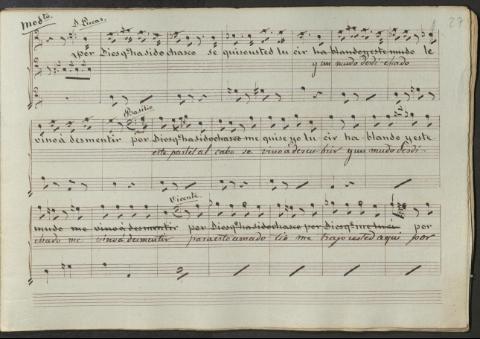 Modto. D. Lucas. 27
por Dios q.e ha sido chasco se quiso usted lu cir ha blando y este mudo le
y un mudo desdi chado
Basilio
vino á desmentir por Dios q.e ha sido chasco me quise yo lu cir ha blando y este
este pastel al cabo se vino a descu brir y un mudo desdi-
Vicente
mudo me vino á desmentir por Dios q.e ha sido chasco por Dios q.e por
chado me vino a desmentir para esto amado tio me trajo usted aqui por